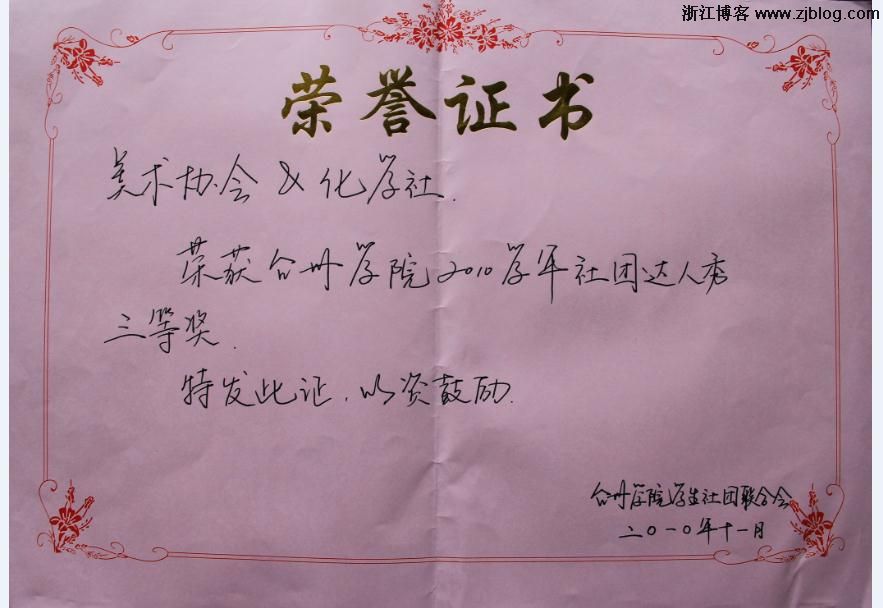 浙江博客 www.zjblog.com
荣誉证书
美术协会 & 化学社.
荣获台州学院2010学年社团达人秀
三等奖.
特发此证,以资鼓励.
台州学院学生社团联合会
二〇一〇年十一月